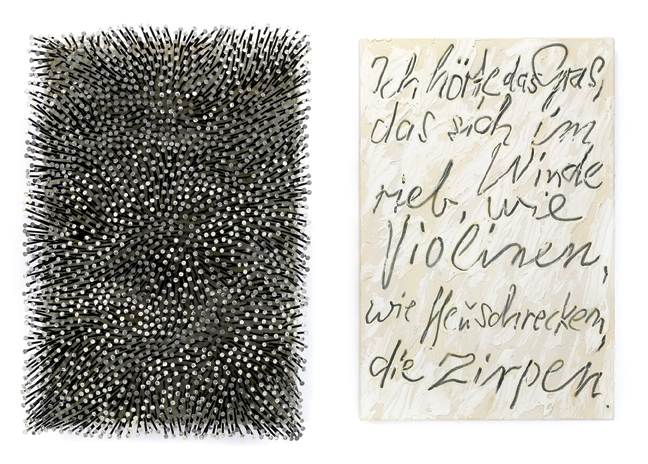 Ich hörte das Gras,
das sich im
Winde
rieb, wie
Violinen,
wie Heuschrecken,
die Zirpen.